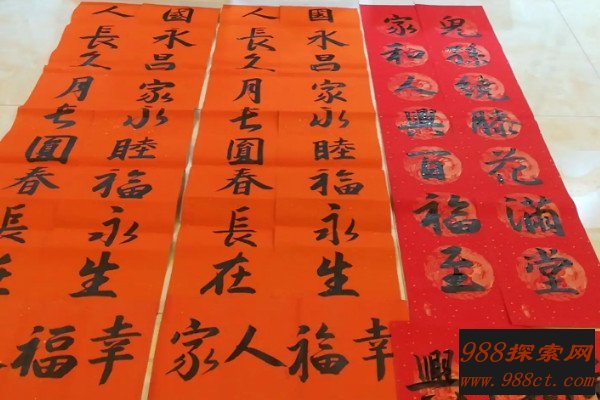 兒孫繞膝花滿堂
家和人興百福至
興
國永昌家永睦福永生
人長久月長圓春長在
幸福人家
國永昌家永睦福永生
人長久月長圓春長
幸福
988探索网
www.988ct.com